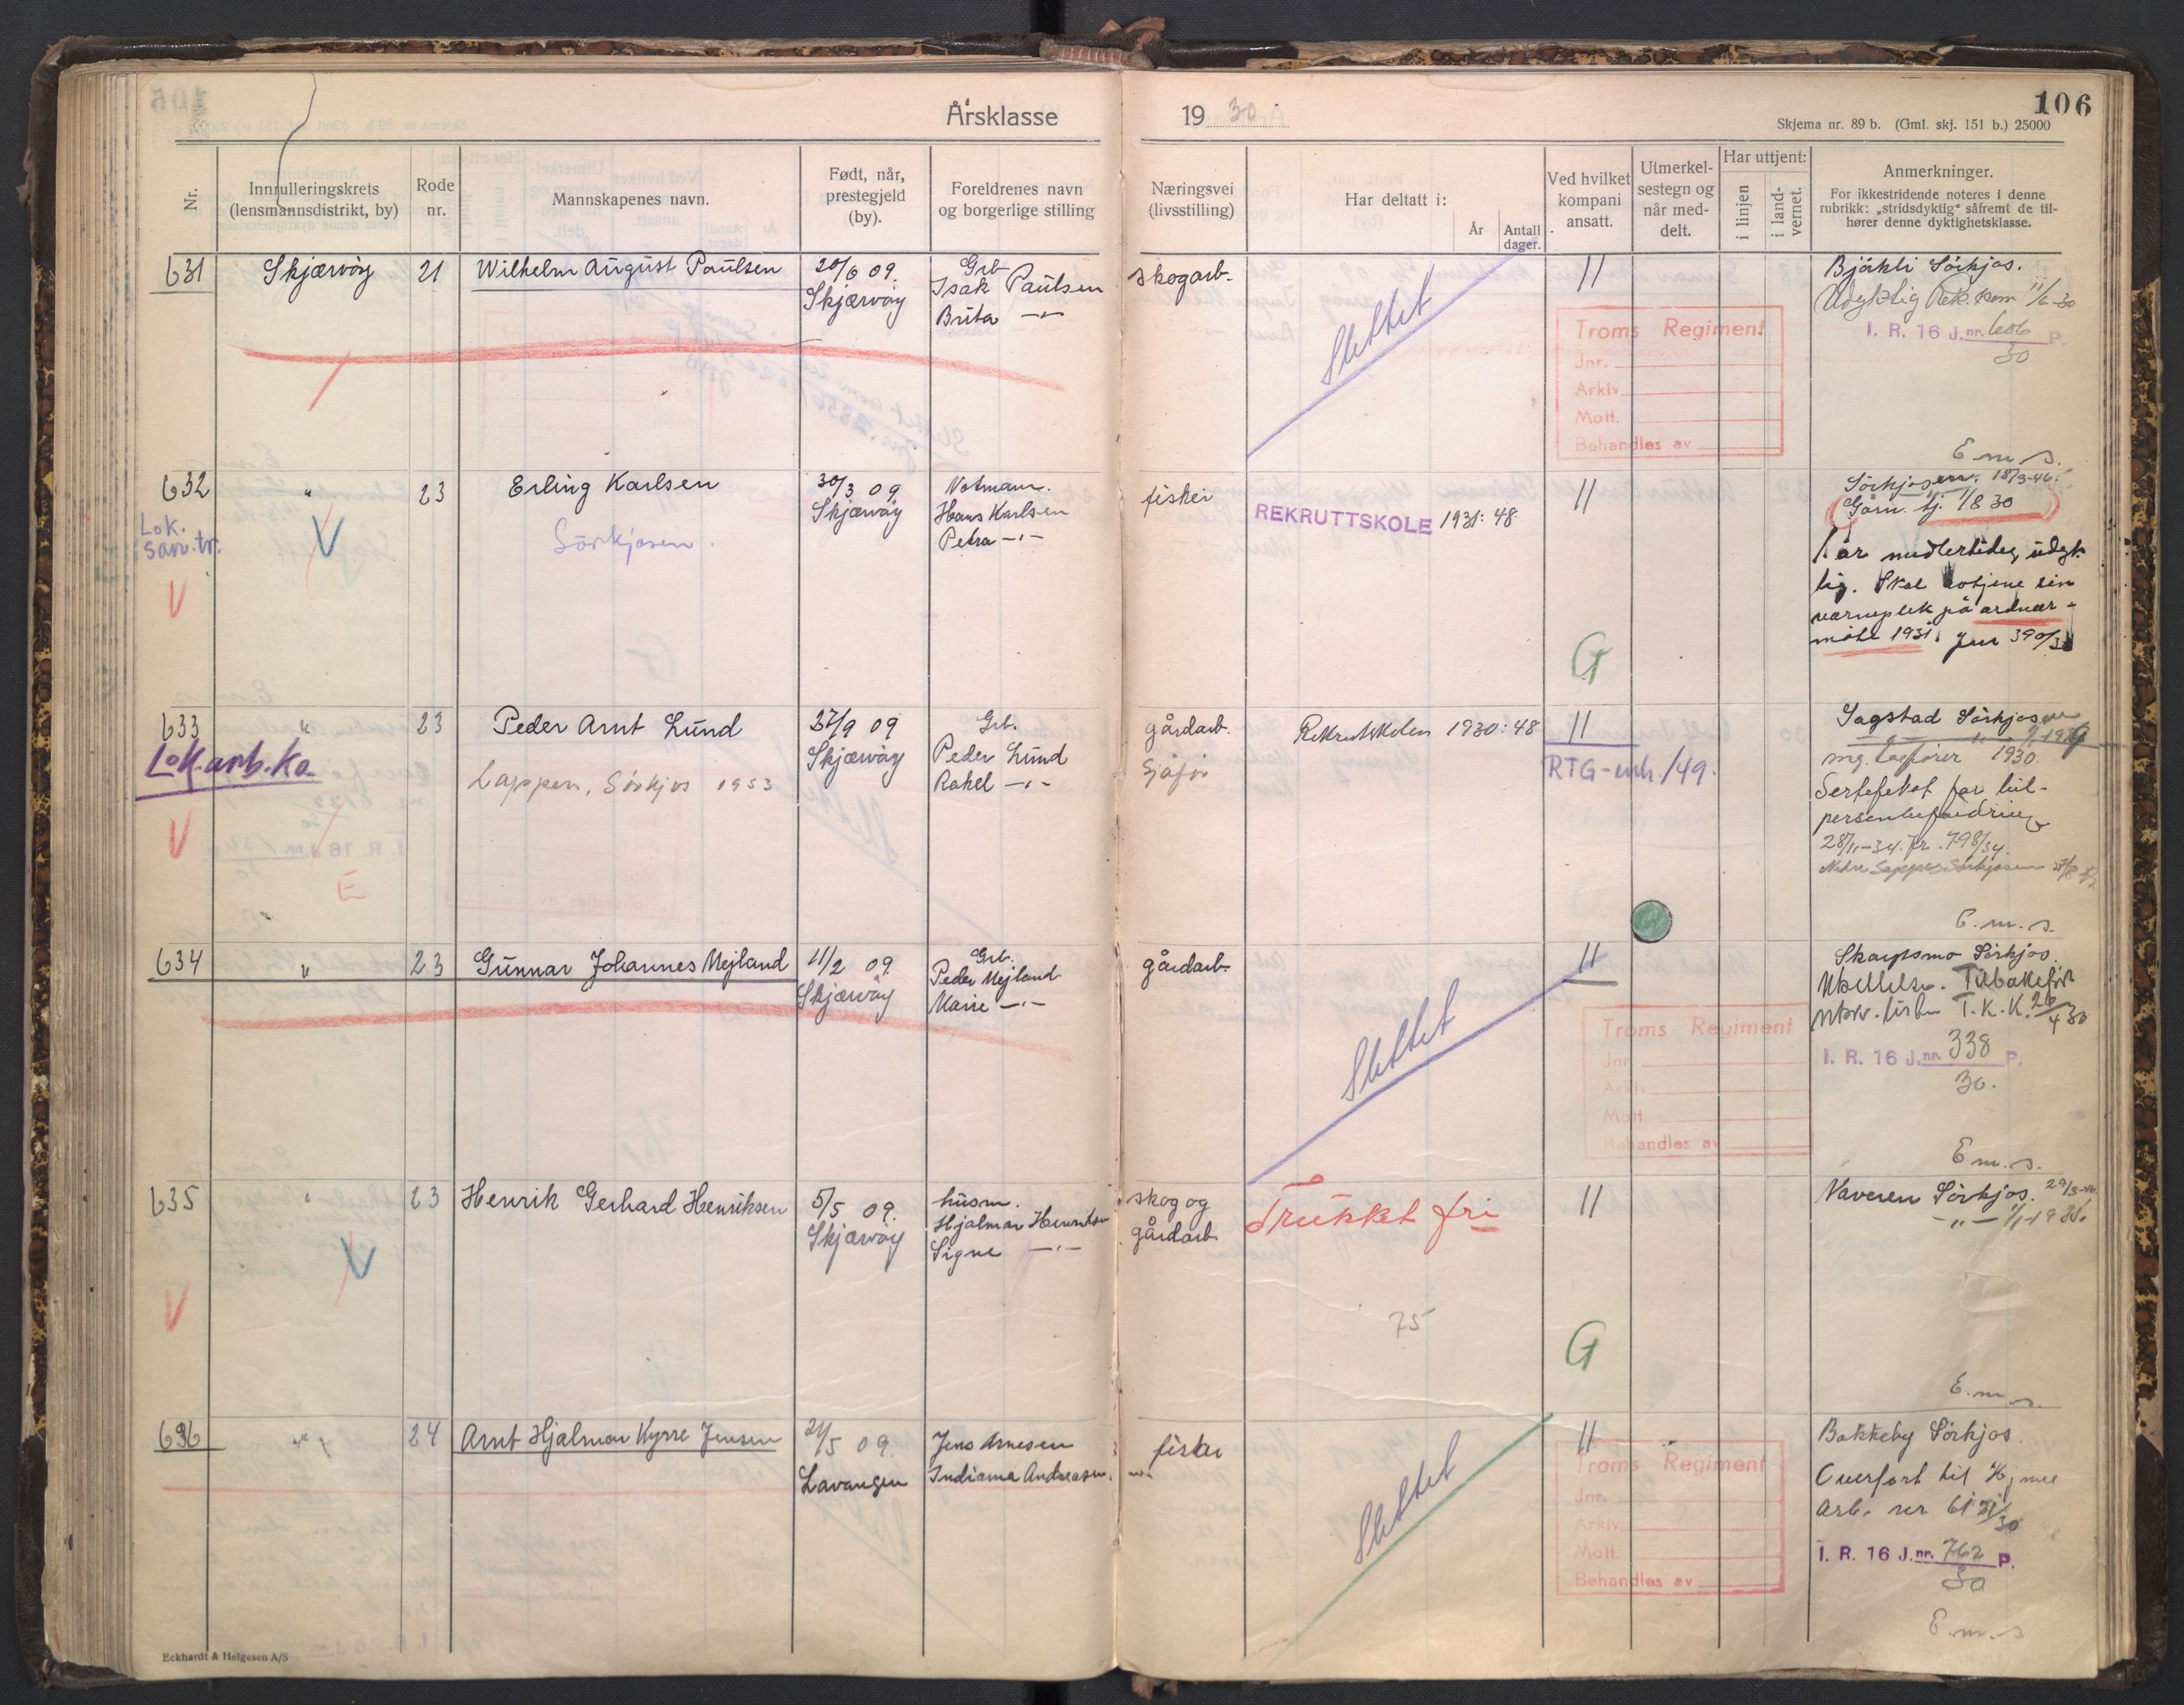 Årsklasse 19 30
106
Skjema nr. 89 b. (Gml. skj. 151 b.) 25000
Nr.
Innrulleringskrets
(lensmannsdistrikt, by)
Rode
nr.
Mannskapenes navn.
Født, når,
prestegjeld
(by).
Foreldrenes navn
og borgerlige stilling
Næringsvei
(livsstilling)
Har deltatt i:
År
Antall
dager.
Ved hvilket
kompani
ansatt.
Utmerkel-
sestegn og
når med-
delt.
Har uttjent:
i linjen
i land-
vernet.
Anmerkninger.
For ikkestridende noteres i denne
rubrikk: „stridsdyktig" såfremt de til-
hører denne dyktighetsklasse.
631
Skjærvöy
21
Wilhelm August Paulsen
20/6 09.
Skjærvöy
Grb
Isak Paulsen
Brita -"-
skogarb.
Slettet
11
Troms Regiment
Jnr.
Arkiv
Mott.
Behandles av
Björkli Sörkjos.
Udyktig Rek. kom 11/6-30
I. R. 16 J.nr. 606 P.
30
E. m. s.
632
"
23
Lok.
san.tr.
V
V
Erling Karlsen
Sörkjosen.
30/3 09
Skjærvöy
Notmann.
Hans Karlsen
Petra -"-
fisker
REKRUTTSKOLE 1931: 48
11
G
Sörkjosen. 18/3-46.
Garn. tj. 1/8 30
1 år midlertidig udyk-
tig. Skal avtjene sin
værneplikt på ordinær
møte 1931. Jnr 390/31
633
"
23
Lok.arb.ko.
V
E
Peder Arnt Lund
Lappen, Sörkjos 1953
27/9 09
Skjærvöy
Grb.
Peder Lund
Rakel -"-
gårdarb.
Sjåfør
Rekrutskolen 1930: 48
11
RTG-enh./49.
Sagstad Sörkjosen
1930.
Sertifikat for bil-
28/11-34. Jr. 798/34.
E. m. s.
634
"
23
Gunnar Johannes Mejland
11/2 09.
Skjærvöy
Grb.
Peder Mejland
Marie -"-
gårdarb.
Slettet
11
Troms Regiment
Jnr.
Arkiv
Mott.
Behandles av
Skarpsmo Sörkjos.
Tilbakeför
T. K. K. 26/4 30
I. R. 16 J.nr. 338 P.
30.
E. m. s.
635
"
23
V
V
Henrik Gerhard Henriksen
5/5 09.
Skjærvöy
husm.
Hjalmar Henriksen
Signe -"-
skog og
gårdarb.
Trukket fri
75
11
G
Naveren Sörkjos. 29/3-46.
E. m. s.
636
"
24
Arnt Hjalmar Kyrre Jensen
21/5 09.
Lavangen
Jens Arnesen
Indianna Andreasen.
fisker
Slettet
11
Troms Regiment
Jnr.
Arkiv
Mott.
Behandles av
Bakkeby Sörkjos.
Overfört til Hj
Arb. nr 61
I. R. 16 J.nr. 762 P.
30
E. m. s
Eckhardt & Helgesen A/S